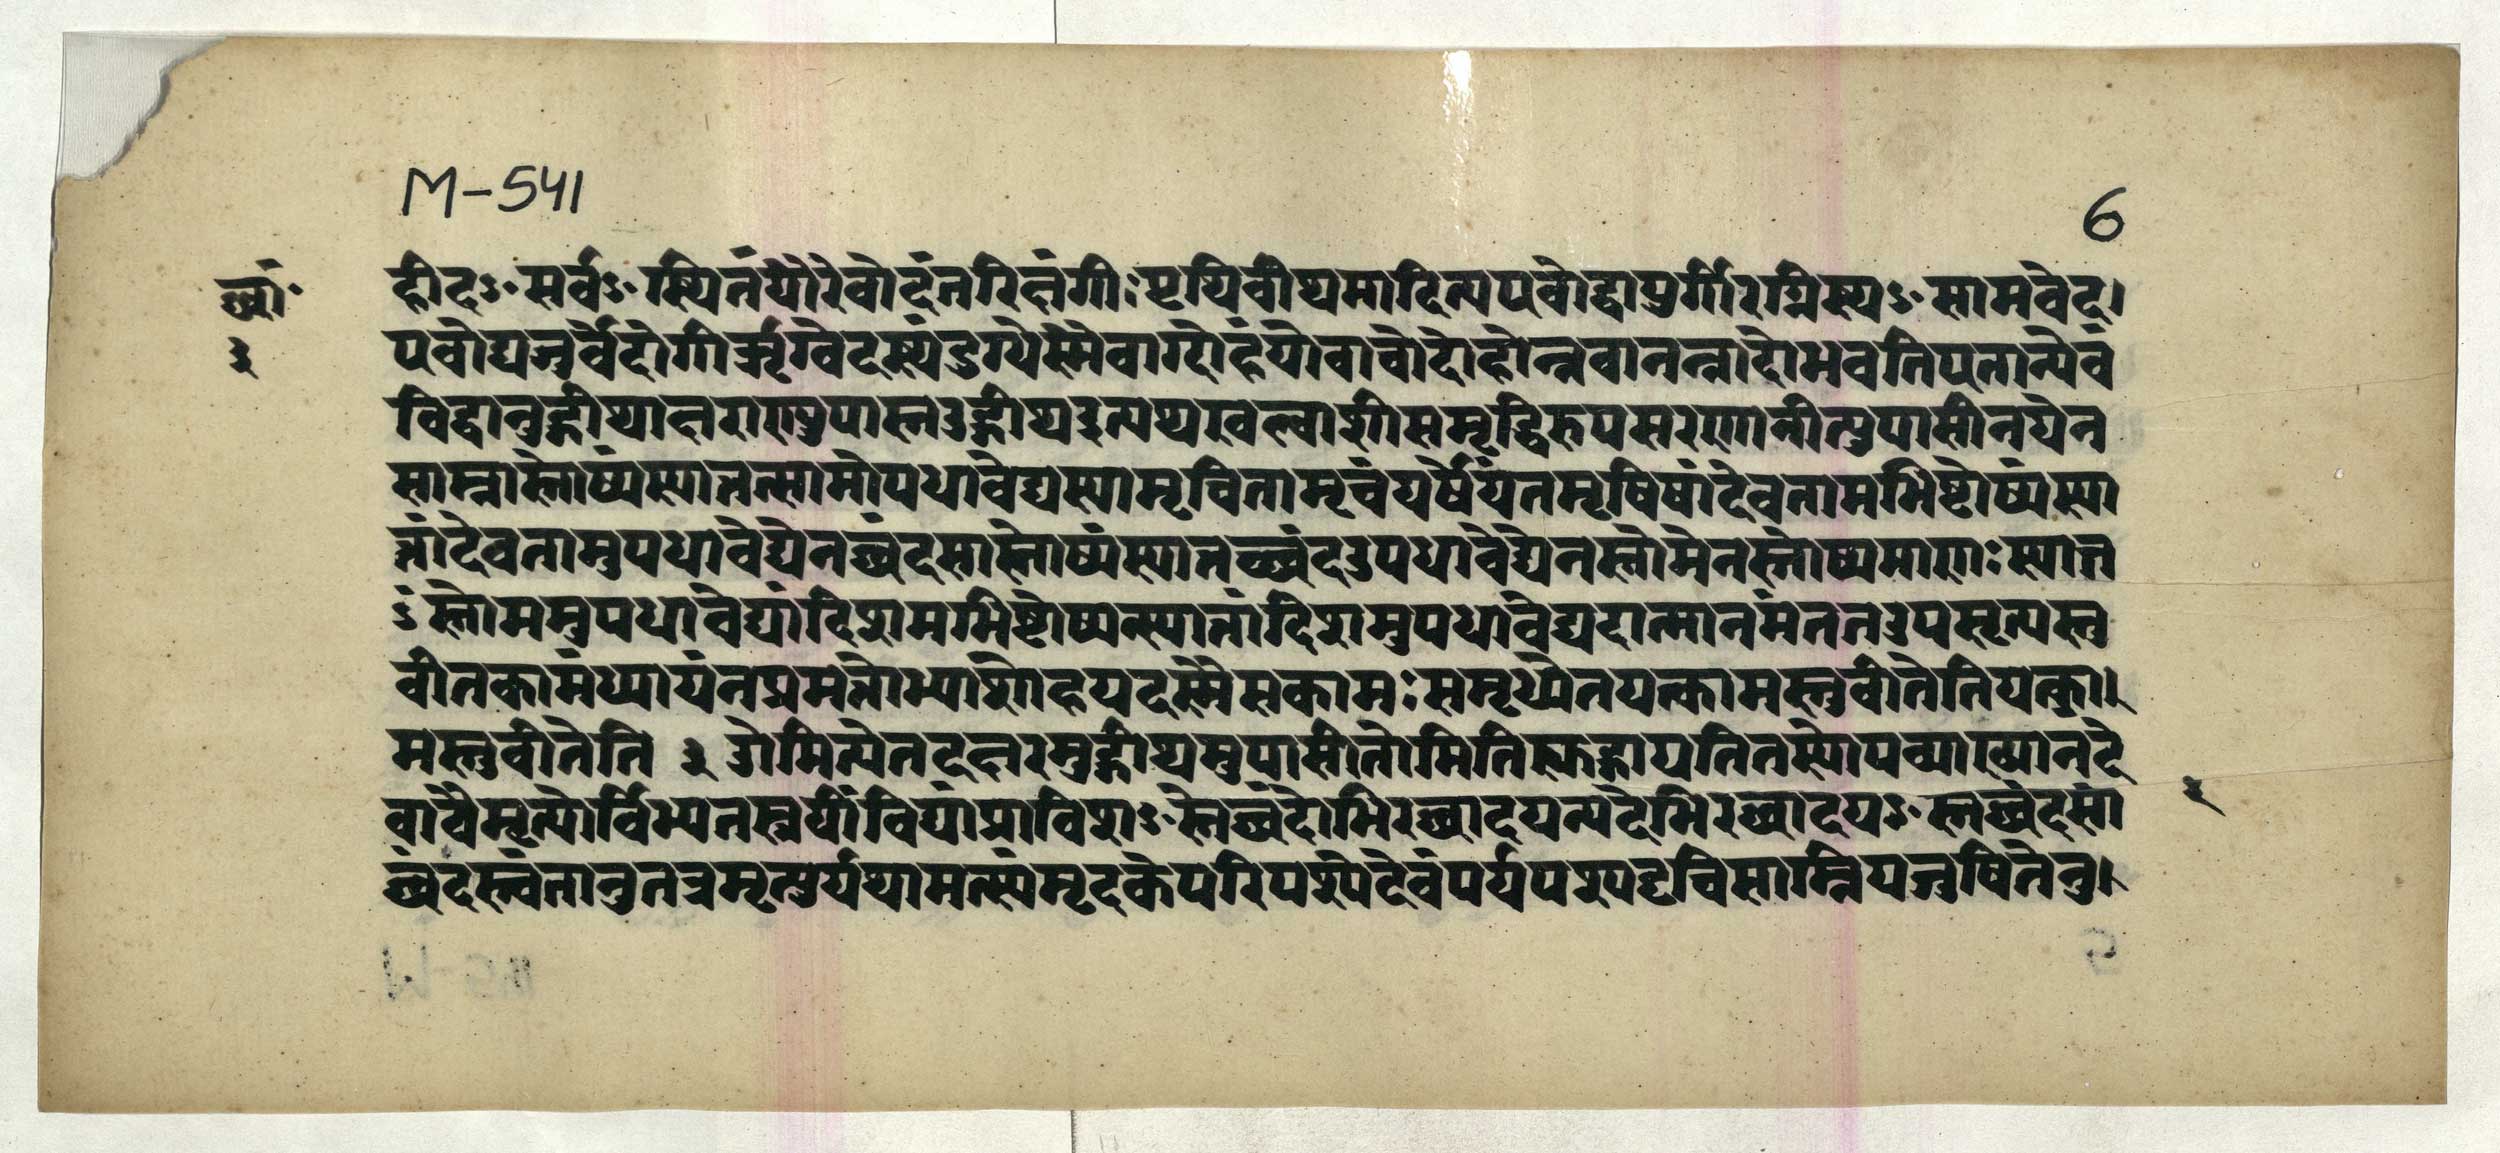 M-541
6
छां॰
३
हीदꣳ सर्वꣳ स्थितंद्यौरेवोदंतरिक्षंगीः पृथिवीथमादित्यएवोद्वायुर्गीरग्निस्थꣳ सामवेद।
एवोद्यजुर्वेदोगीर्ऋग्वेदस्थंदुग्धेस्मैवाग्दोहंयोवाचोदोहोन्नवानन्नादोभवतिएतान्येवं
विद्वानुद्गीथाक्षराण्युपास्तउद्गीथइत्यथखल्वाशीसमृद्धिरुपसरणानीत्युपासीतयेन
साम्नास्तोष्यंस्यात्तत्सामोपधावेद्यस्यामृचितामृचंयर्षेयंतमृषिंयांदेवतामभिष्टोष्यंस्या
त्तांदेवतामुपधावेद्येनछंदसास्तोष्यंस्यात्तच्छंदउपधावेद्येनस्तोमेनस्तोष्यमाणः स्यात्त
ꣳ स्तोममुपधावेद्यांदिशमभिष्टोष्यन्स्यात्तांदिशमुपधावेद्यदात्मानमंततउपसृत्यस्तु
वीतकामंध्यायंनप्रमत्तोभ्याशोहयदस्मैसकामः समृध्येतयत्कामस्तुवीतेतियत्का॥
मस्तुवीतेति ३ ओमित्येतदक्षरमुद्गीथमुपासीतोमितिह्युद्गायतितस्योपव्याख्यानदे
२
वावैमृत्योर्विभ्यतस्त्रयींविद्यांप्राविशꣳ स्तेछंदोभिरछादयन्यदेभिरछादयꣳ स्तछंदसां
छंदस्त्वंतानुतत्रमृत्युर्यथामत्स्यंमुदकेपरिपश्येदेवंपर्यपश्यदृचिसाम्नियजुषितेनु।